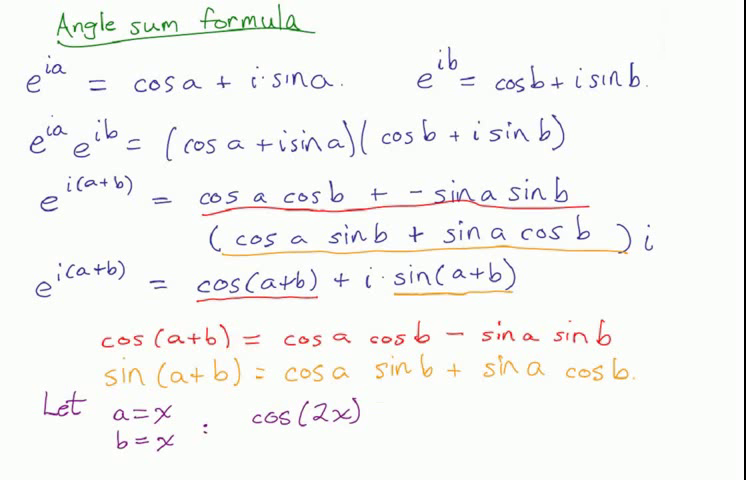 Angle sum formula
e^{ia} = cos a + i · sin a.   e^{ib} = cos b + i sin b.
e^{ia} e^{ib} = (cos a + i sin a)(cos b + i sin b)
e^{i(a+b)} = cos a cos b + - sin a sin b
(cos a sin b + sin a cos b) i
e^{i(a+b)} = cos(a+b) + i · sin(a+b)
cos (a+b) = cos a cos b - sin a sin b
sin (a+b) = cos a sin b + sin a cos b.
Let a = x : cos(2x)
b = x